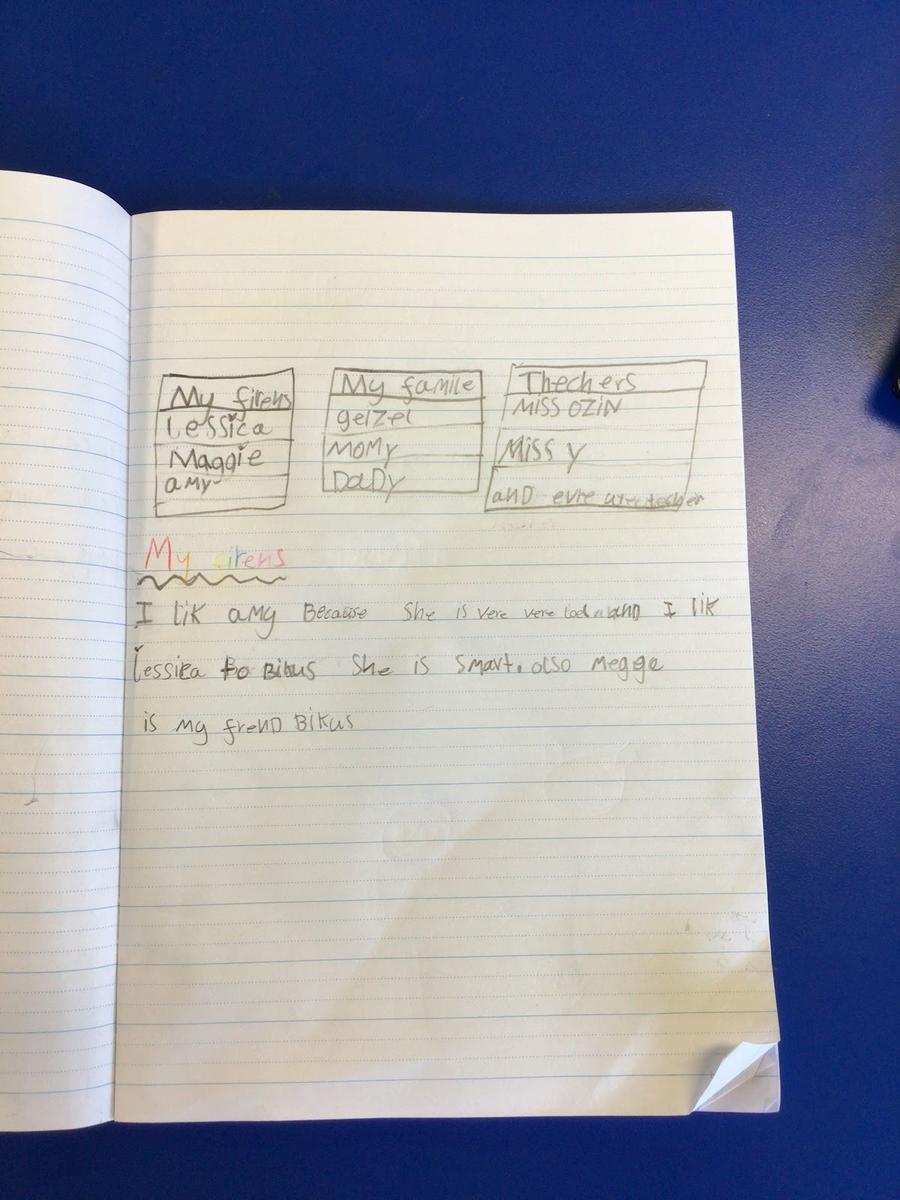 My firens
Lessica
Maggie
amy
My famile
gelzel
MOMY
DaDy
Thechers
MISS OZIN
Miss y
and evre techer
My firens
I lik amy Because She is vere vere and I lik
Lessica Bikus She is Smart. also Megge
is my frend Bikus